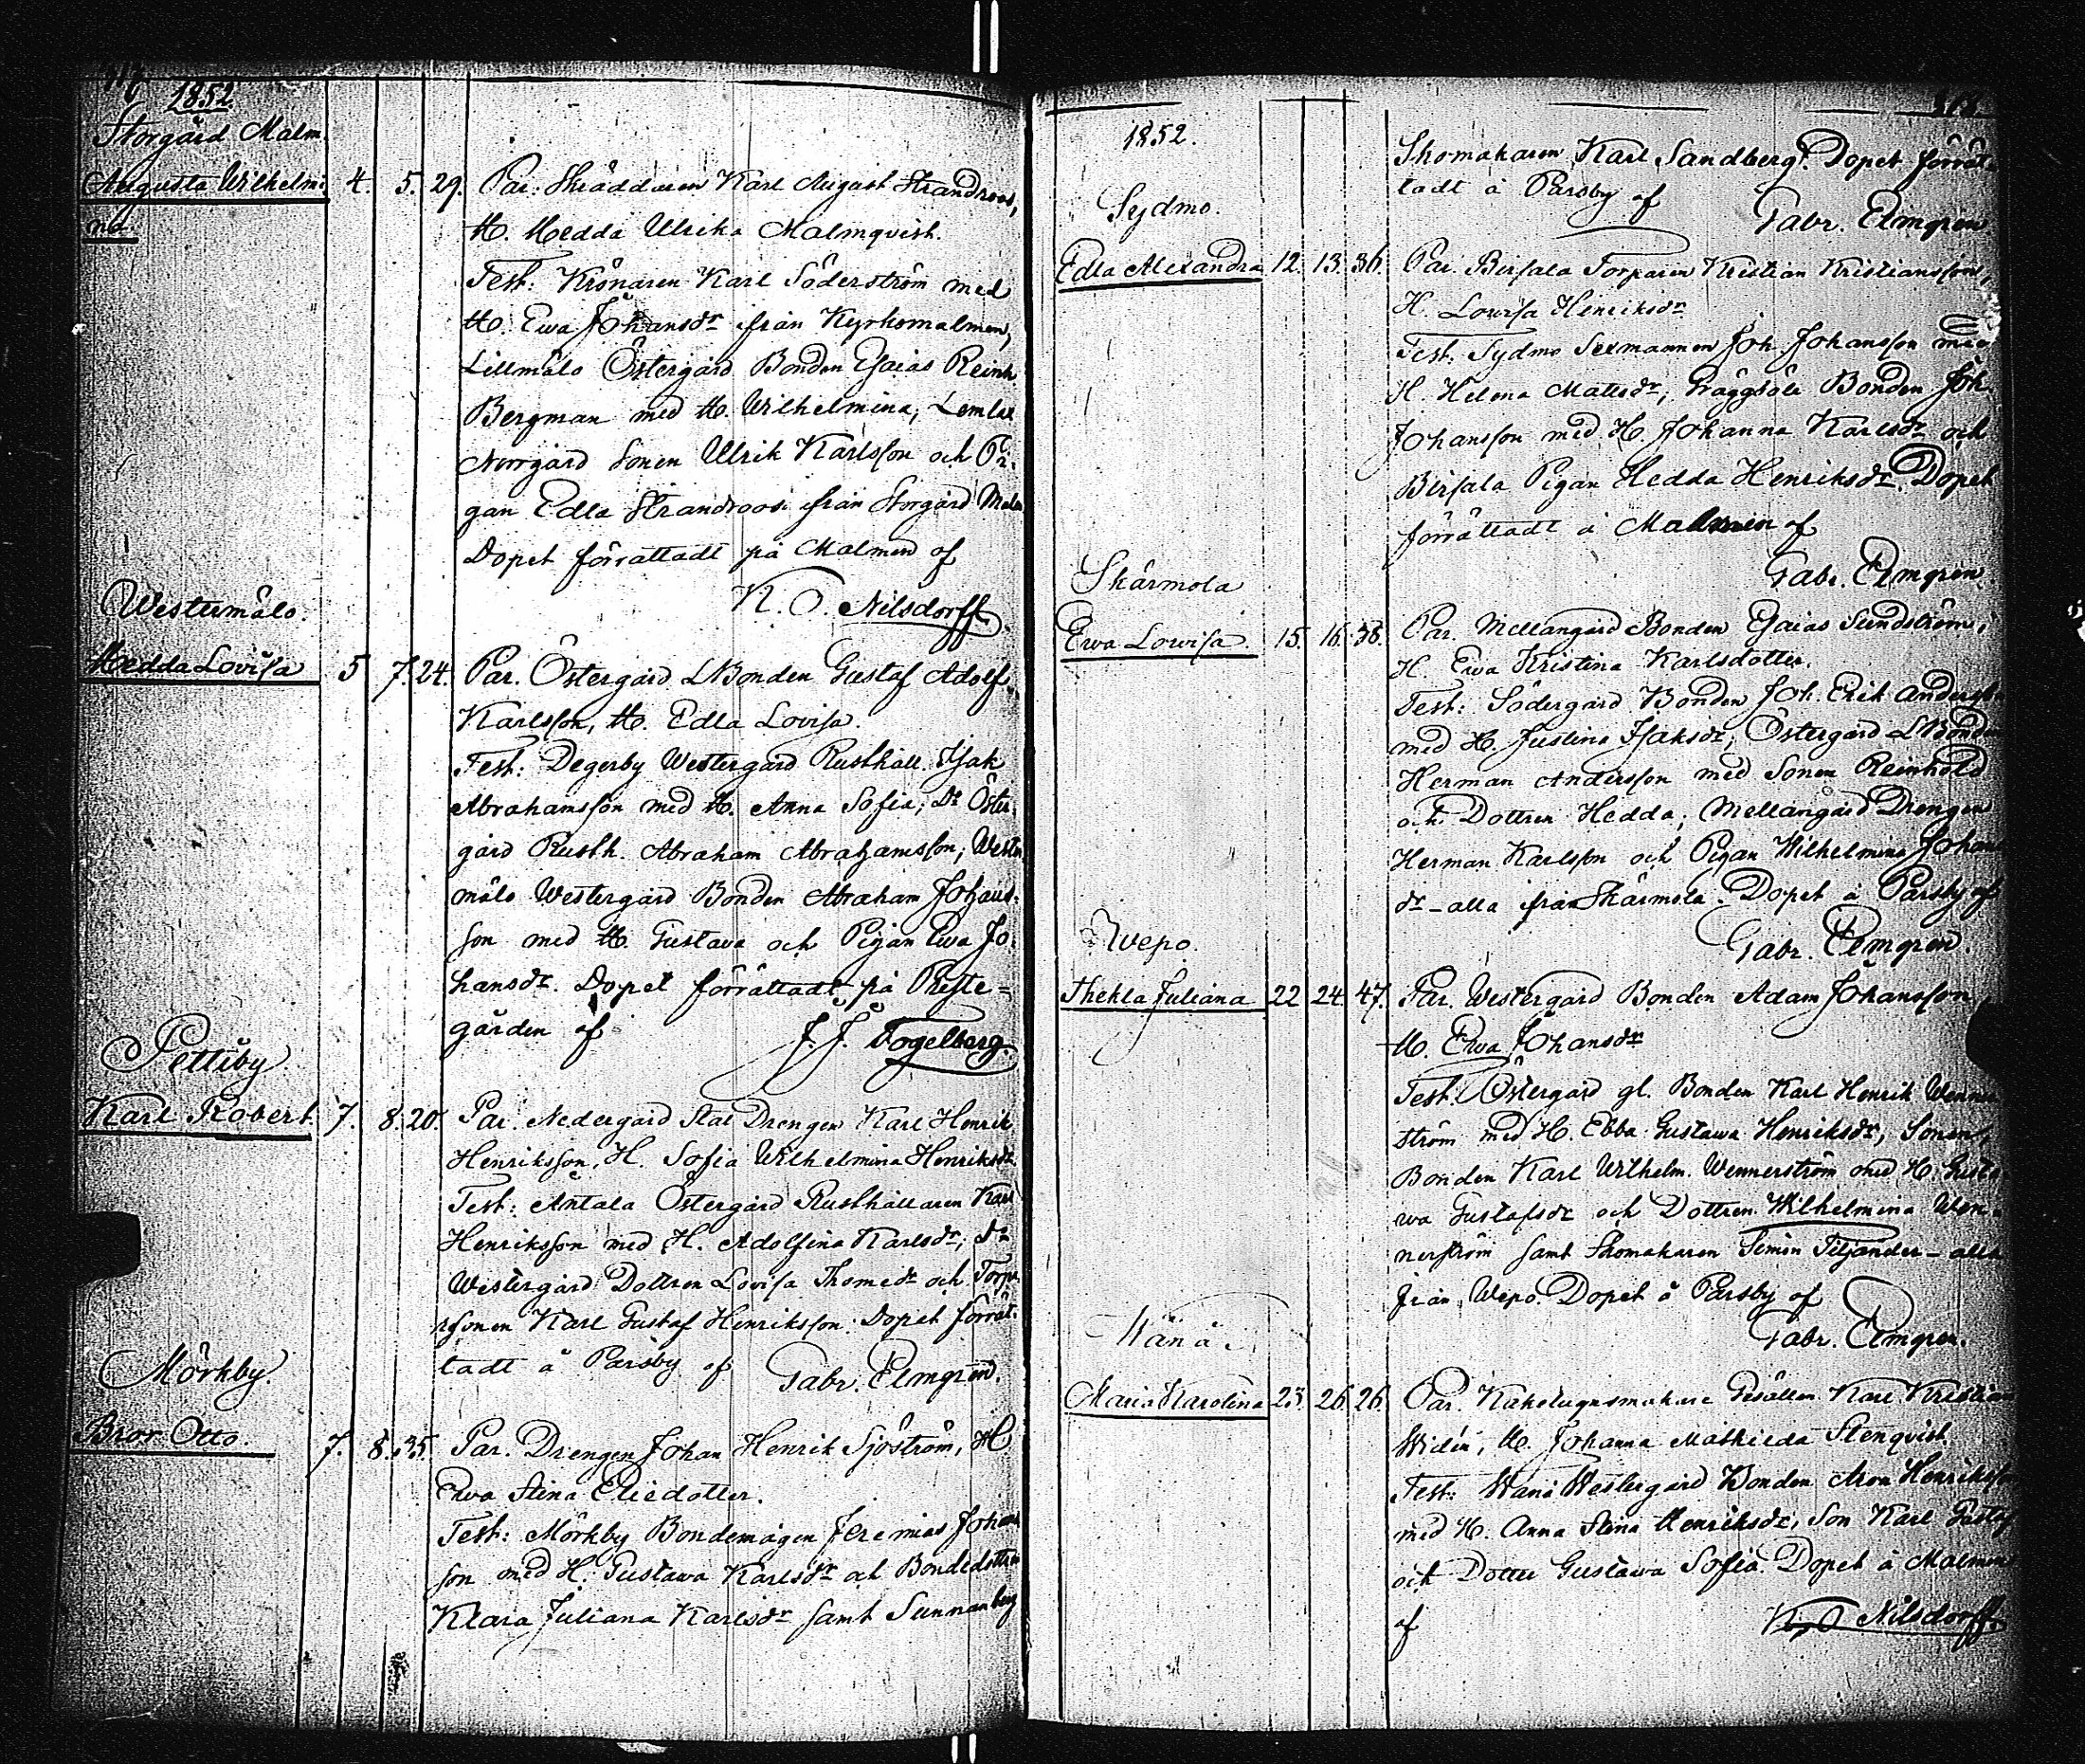 1852.
Storgård Malm.
Augusta Wilhelmi 4. 5. 29. Par: Skräddaren Karl August Strandroos,
na. H. Hedda Ulrika Malmqvist.
Test: Krönaren Karl Söderström med
H. Ewa Johansdr från Kyrkomalmen,
Lillmälo Östergård Bonden Esaias Reinh
Bergman med H. Wilhelmina, Lemlax
Norrgård Sonen Ulrik Karlsson och Pi-
gan Edla Strandroos från Storgård Malm
Dopet förrättadt på Malmen af
K. O. Nilsdorff.
Westermälo.
Hedda Lovisa 5 7. 24. Par. Östergård LBonden Gustaf Adolf
Karlsson, H. Edla Lovisa.
Test: Degerby Westergård Rusthåll. Isak
Abrahamsson med H. Anna Sofia; Do Öster-
gård Rusth. Abraham Abrahamsson; Wester
mälo Westergård Bonden Abraham Johans-
son med H. Gustava och Pigan Ewa Jo-
hansdr. Dopet förrättadt på Preste-
gården af J. J. Fogelberg.
Pettiby
Karl Robert. 7. 8. 20. Par. Nedergård Stat Drengen Karl Henrik
Henriksson, H. Sofia Wilhelmina Henriksdr.
Test: Antala Östergård Rusthållaren Karl
Henriksson med H. Adolfina Karlsdr; Do
Westergård Dottren Lovisa Thomedr och Torpa
resonen Karl Gustaf Henriksson. Dopet förrät-
tadt å Parsby af Gabr. Elmgren.
Mörkby.
Bror Otto. 7. 8. 35. Par. Drengen Johan Henrik Sjöström, H.
Ewa Stina Eliedotter.
Test: Mörkby Bondemågen Jeremias Johans
son med H. Gustawa Karlsdr och Bondedottren
Klara Juliana Karlsdr samt Sunnanberg
1852.
Skomakaren Karl Sandberg. Dopet förrät-
tadt å Parsby af
Gabr. Elmgren
Sydmo.
Edla Alexandra 12. 13. 36. Par. Birsala Torparen Kristian Kristiansson,
H. Lovisa Henriksdr
Test: Sydmo Sexmannen Joh. Johansson med
H. Helena Mattsdr; Gräggböle Bonden Joh.
Johansson med H. Johanna Karlsdr och
Birsala Pigan Hedda Henriksdr. Dopet
förrättadt å Malmen af
Gabr. Elmgren
Skärmola
Ewa Lowisa. 15. 16. 38. Par. Mellangård Bonden Esaias Sundström,
H. Ewa Kristina Karlsdotter.
Test: Södergård Bonden Joh. Erik Anderss
med H. Justina Isaksdr; Östergård LBonden
Herman Andersson med Sonen Reinhold
och Dottren Hedda; Mellangård Drengen
Herman Karlsson och Pigan Wilhelmina Johans
dr - alla från Skärmola. Dopet å Parsby af
Gabr. Elmgren.
Wepo.
Thekla Juliana 22 24. 47. Par. Westergård Bonden Adam Johansson
H. Ewa Johansdr
Test: Östergård gl. Bonden Karl Henrik Wenner
ström med H. Ebba Gustawa Henriksdr, Sonen,
Bonden Karl Wilhelm. Wennerström med H. Gusta
wa Gustafsdr och Dottren Wilhelmina Wen-
nerström samt Skomakaren Simon Tiljander - alla
från Wepo. Dopet å Parsby af
Gabr. Elmgren.
Wänå.
Maria Karolina 23. 26. 26. Par. Kakelugnsmakare Gesällen Karl Kristian
Widén, H. Johanna Mathilda Stenqvist.
Test: Wänå Westergård Bonden Aron Henriksson
med H. Anna Stina Henriksdr, Son Karl Gustaf
och Dotter Gustawa Sofia. Dopet å Malmen
af K. O. Nilsdorff.